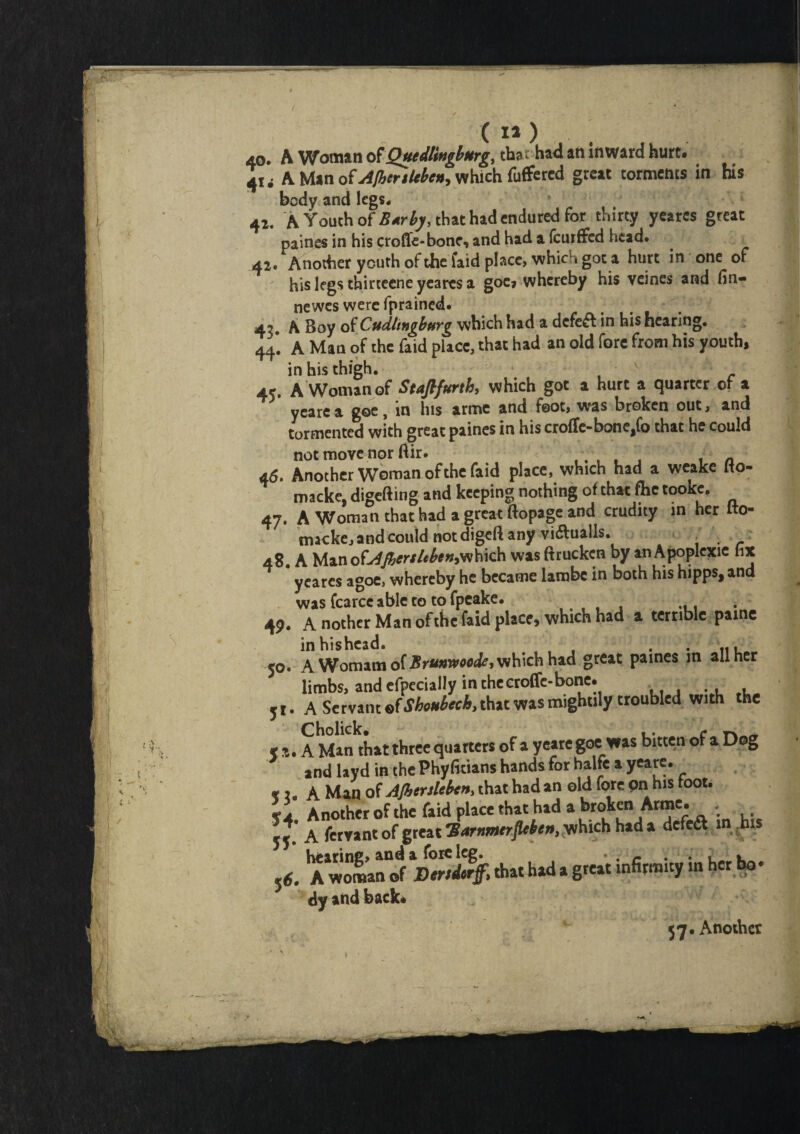 ( 12 )
40. A Woman of Quedlingburg, that had an inward hurt.
41. A Man of Aſhersleben, which ſuffered great torments in his
body and legs.
42. A Youth of Barby, that had endured for thirty yeares great
paines in his croſſe-bone, and had a ſcurffed head.
42. Another youth of the ſaid place, which got a hurt in one of
his legs thirteene yeares a goe, whereby his veines and ſin-
newes were ſprained.
43. A Boy of Cudlingburg which had a defect in his hearing.
44. A Man of the ſaid place, that had an old ſore from his youth,
in his thigh.
45. A Woman of Staſſfurth, which got a hurt a quarter of a
yeare a goe, in his arme and foot, was broken out, and
tormented with great paines in his croſſe-bone, ſo that he could
not move nor ſtir.
46. Another Woman of the ſaid place, which had a weake ſto-
macke, digeſting and keeping nothing of that ſhe tooke.
47. A Woman that had a great ſtopage and crudity in her ſto-
macke, and could not digeſt any victualls.
48. A Man of Aſhersleben, which was ſtrucken by an Apoplexie ſix
yeares agoe, whereby he became lambe in both his hipps, and
was ſcarce able to to ſpeake.
49. A nother Man of the ſaid place, which had a terrible paine
in his head.
50. A Womam of Brunwoode, which had great paines in all her
limbs, and eſpecially in the croſſe-bone.
51. A Servant of Shoubech, that was mightily troubled with the
Cholick.
52. A Man that three quarters of a yeare goe was bitten of a Dog
and layd in the Phyſitians hands for halfe a yeare.
53. A Man of Aſhersleben, that had an old ſore on his foot.
54. Another of the ſaid place that had a broken Arme.
55. A ſervant of great Barnmerſleben, which had a defect in his
hearing, and a ſore leg.
56. A woman of Dersdorff, that had a great infirmity in her bo-
dy and back.
57. Another